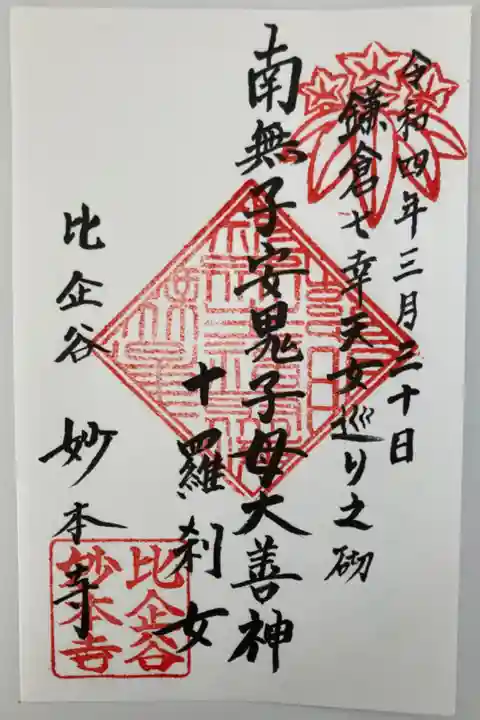 令和四年三月二十日
鎌倉七幸天女巡り之砌
南無子安鬼子母大善神
十羅刹女
比企谷 妙本寺
比企谷
妙本寺